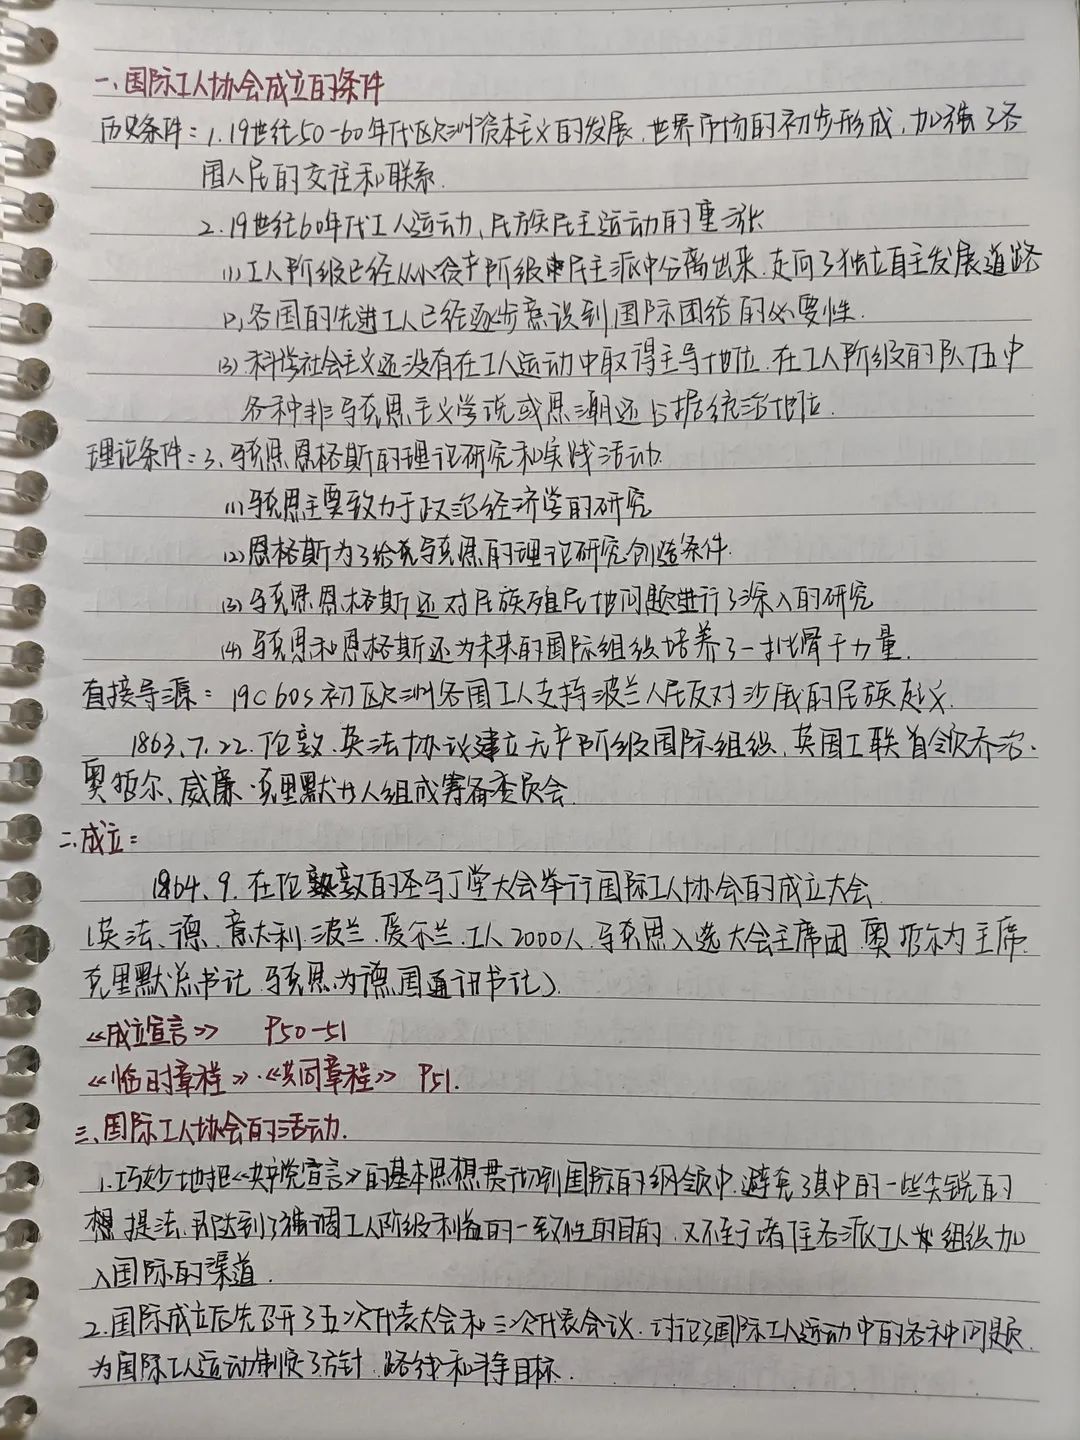 一、国际工人协会成立的条件
历史条件：1.19世纪50-60年代欧洲资本主义的发展，世界市场的初步形成，加强了各
国人民的交往和联系.
2.19世纪60年代工人运动、民族民主运动的重涨
(1)工人阶级已经从小资产阶级民主派中分离出来，走向了独立自主发展道路
(2)各国的先进工人已经逐步意识到国际团结的必要性.
(3)科学社会主义还没有在工人运动中取得主导地位，在工人阶级的队伍中
各种非马克思主义学说或思潮还占据统治地位.
理论条件：3.马克思恩格斯的理论研究和实践活动.
(1)马克思主要致力于政治经济学的研究
(2)恩格斯为了给马克思的理论研究创造条件.
(3)马克思恩格斯还对民族殖民地问题进行了深入的研究
(4)马克思和恩格斯还为未来的国际组织培养了一批骨干力量.
直接导源：19C60s初欧洲各国工人支持波兰人民反对沙俄的民族起义.
1863.7.22.伦敦.英法协议建立无产阶级国际组织，英国工联首领乔治·
奥哲尔、威廉·克里默廿人组成筹备委员会.
二、成立：
1864.9.在伦敦的圣马丁堂大会举行国际工人协会的成立大会
(英、法、德、意大利、波兰、爱尔兰、工人2000人，马克思入选大会主席团，奥哲尔为主席.
克里默总书记，马克思为德国通讯书记).
《成立宣言》 P50-51
《临时章程》·《共同章程》 P51.
三、国际工人协会的活动.
1.巧妙地把《共产党宣言》的基本思想贯彻到国际的纲领中，避免了其中的一些尖锐的
提法，既达到了强调工人阶级利益的一致性的目的，又不至于堵住各派工人组织加
入国际的渠道.
2.国际成立后先召开了五次代表大会和三次代表会议，讨论了国际工人运动中的各种问题.
为国际工人运动制定了方针、路线和斗争目标.